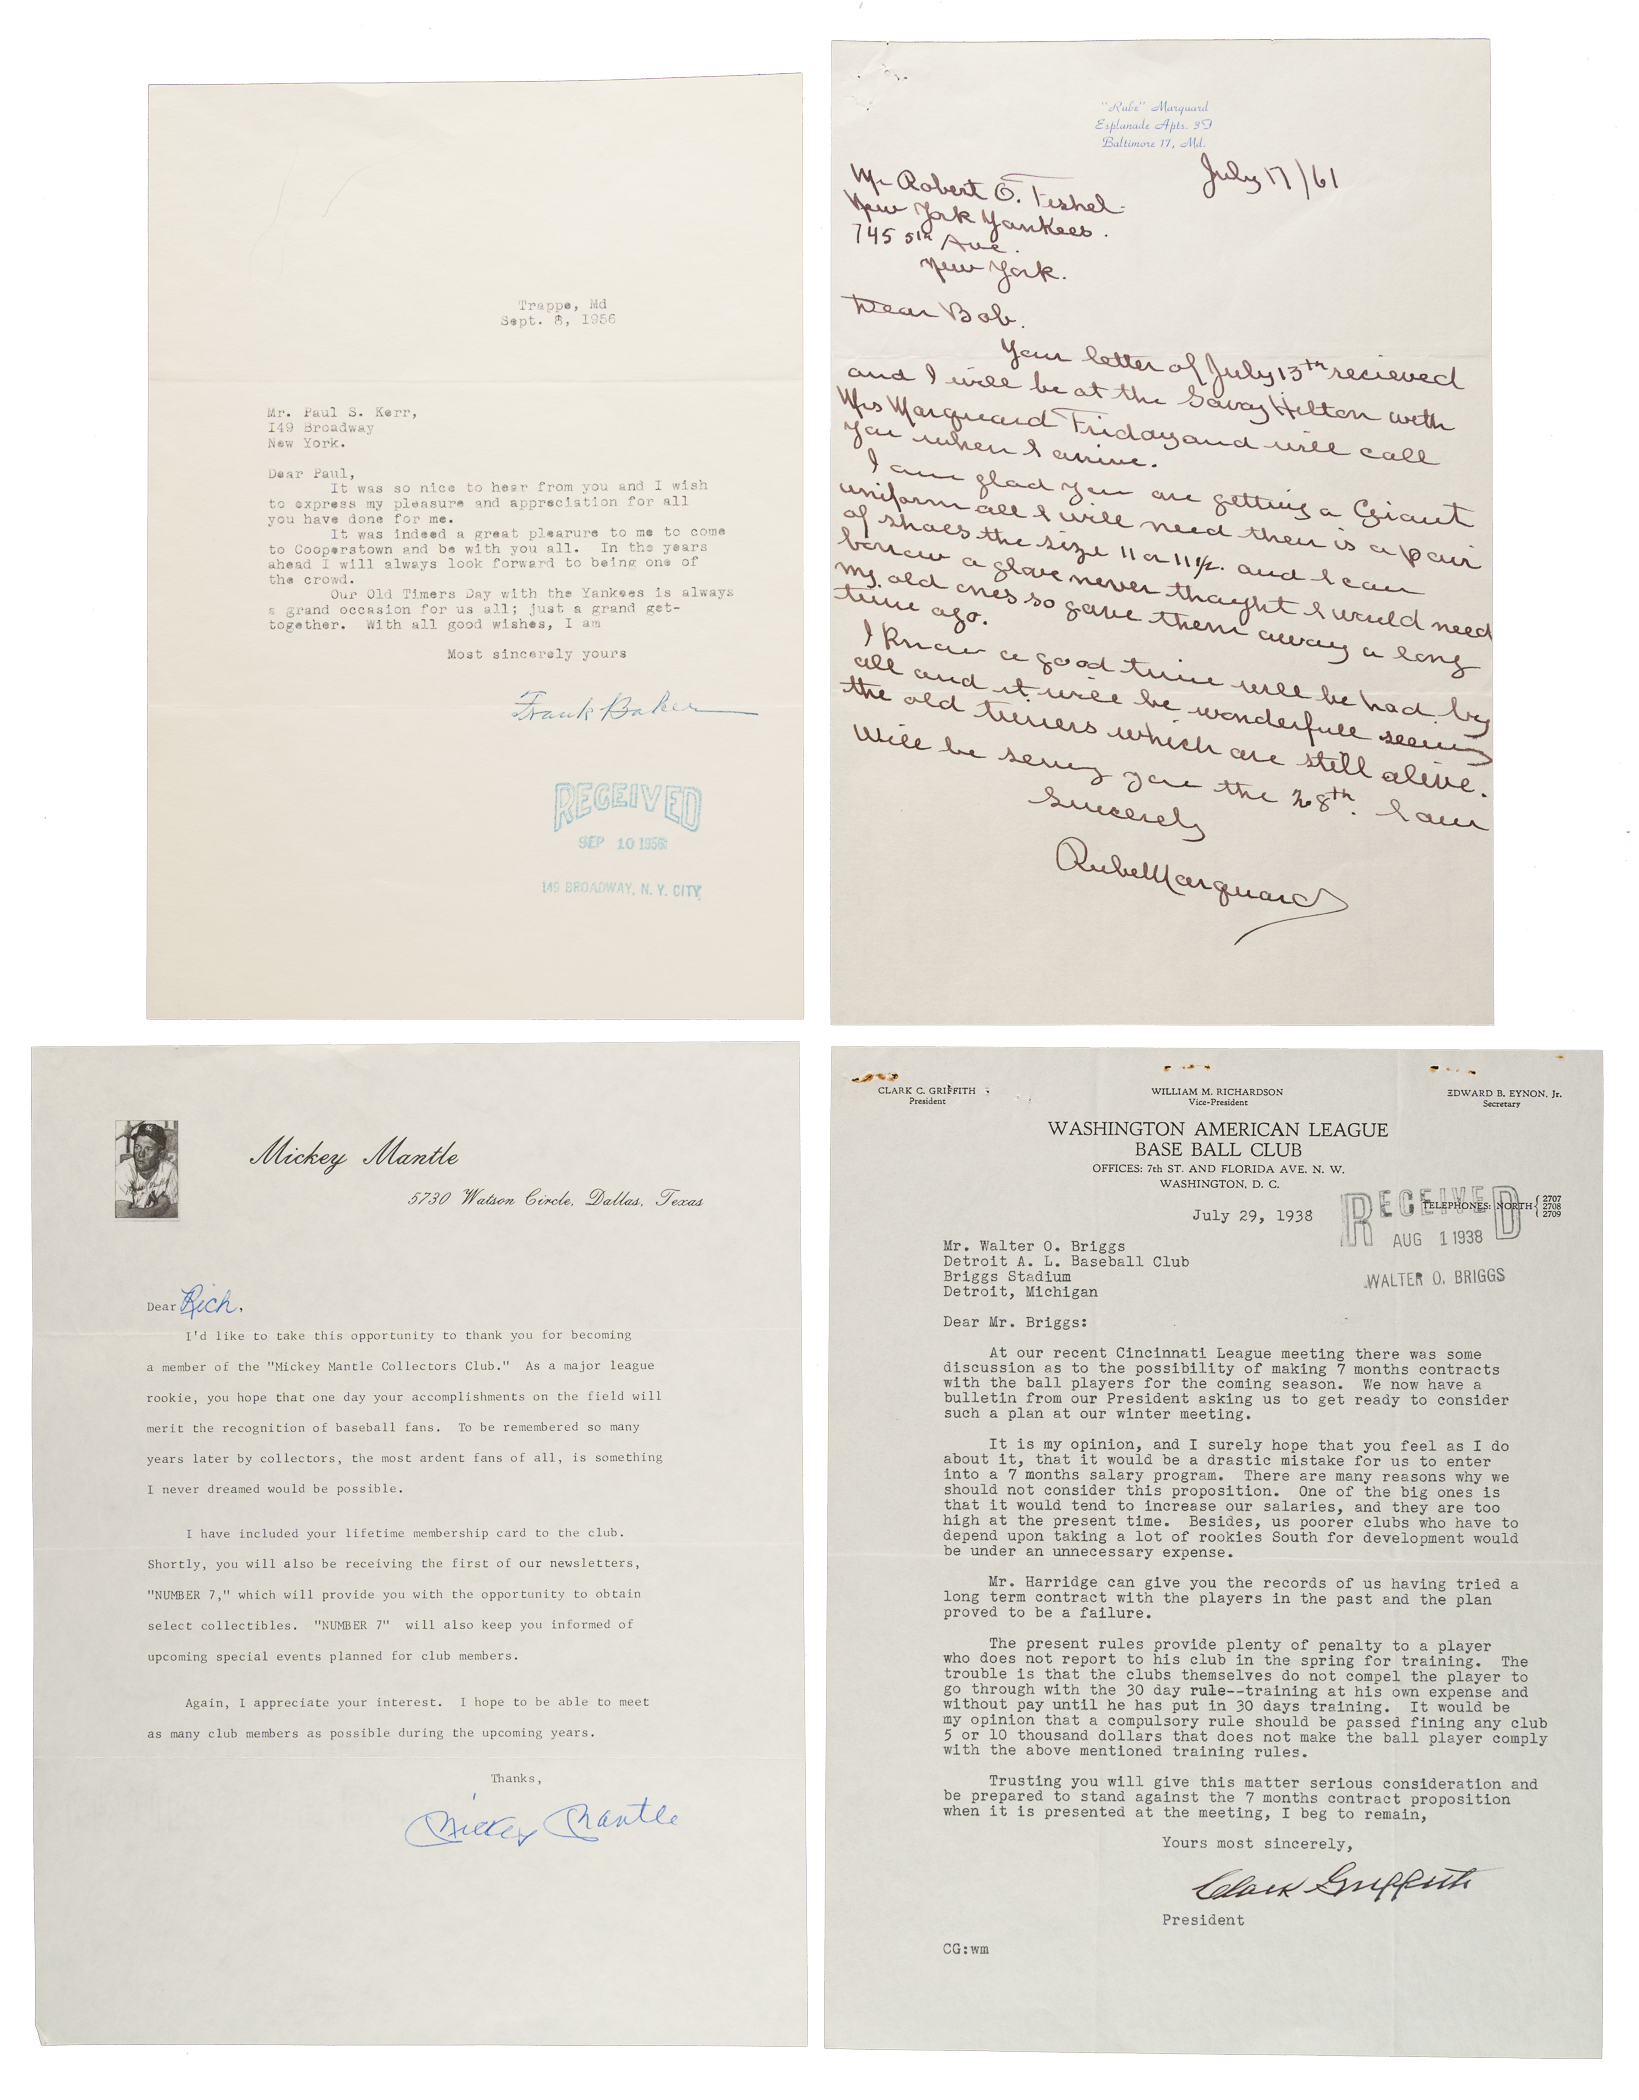 Trappe, Md
Sept. 8, I956
Mr. Paul S. Kerr,
I49 Broadway
New York.
Dear Paul,
It was so nice to hear from you and I wish
to express my pleasure and appreciation for all
you have done for me.
It was indeed a great plearure to me to come
to Cooperstown and be with you all. In the years
ahead I will always look forward to being one of
the crowd.
Our Old Timers Day with the Yankees is always
a grand occasion for us all; just a grand get-
together. With all good wishes, I am
Most sincerely yours
Frank Baker
RECEIVED
SEP 10 1956
149 BROADWAY, N. Y. CITY
"Rube" Marquard
Esplanade Apts. 3F
Baltimore 17, Md.
July 17/61
Mr Robert O. Fishel
New York Yankees.
745 5th Ave.
New York.
Dear Bob.
Your letter of July 13th recieved
and I will be at the Savoy Hilton with
Mrs Marquard Friday and will call
you when I arrive.
I am glad you are getting a Giant
uniform all I will need then is a pair
of shoes the size 11 or 11½. and I can
borrow a glove never thought I would need
my old ones so gave them away a long
time ago.
I know a good time will be had by
all and it will be wonderfull seeing
the old timers which are still alive.
Will be seing you the 28th. I am
Sincerely
Rube Marquard
Mickey Mantle
5730 Watson Circle, Dallas, Texas
Dear Rich,
I'd like to take this opportunity to thank you for becoming
a member of the "Mickey Mantle Collectors Club." As a major league
rookie, you hope that one day your accomplishments on the field will
merit the recognition of baseball fans. To be remembered so many
years later by collectors, the most ardent fans of all, is something
I never dreamed would be possible.
I have included your lifetime membership card to the club.
Shortly, you will also be receiving the first of our newsletters,
"NUMBER 7," which will provide you with the opportunity to obtain
select collectibles. "NUMBER 7" will also keep you informed of
upcoming special events planned for club members.
Again, I appreciate your interest. I hope to be able to meet
as many club members as possible during the upcoming years.
Thanks,
Mickey Mantle
CLARK C. GRIFFITH
President
WILLIAM M. RICHARDSON
Vice-President
EDWARD B. EYNON, Jr.
Secretary
WASHINGTON AMERICAN LEAGUE
BASE BALL CLUB
OFFICES: 7th ST. AND FLORIDA AVE. N. W.
WASHINGTON, D. C.
TELEPHONES: NORTH { 2707
2708
2709
July 29, 1938
RECEIVED
AUG 1 1938
WALTER O. BRIGGS
Mr. Walter O. Briggs
Detroit A. L. Baseball Club
Briggs Stadium
Detroit, Michigan
Dear Mr. Briggs:
At our recent Cincinnati League meeting there was some
discussion as to the possibility of making 7 months contracts
with the ball players for the coming season. We now have a
bulletin from our President asking us to get ready to consider
such a plan at our winter meeting.
It is my opinion, and I surely hope that you feel as I do
about it, that it would be a drastic mistake for us to enter
into a 7 months salary program. There are many reasons why we
should not consider this proposition. One of the big ones is
that it would tend to increase our salaries, and they are too
high at the present time. Besides, us poorer clubs who have to
depend upon taking a lot of rookies South for development would
be under an unnecessary expense.
Mr. Harridge can give you the records of us having tried a
long term contract with the players in the past and the plan
proved to be a failure.
The present rules provide plenty of penalty to a player
who does not report to his club in the spring for training. The
trouble is that the clubs themselves do not compel the player to
go through with the 30 day rule--training at his own expense and
without pay until he has put in 30 days training. It would be
my opinion that a compulsory rule should be passed fining any club
5 or 10 thousand dollars that does not make the ball player comply
with the above mentioned training rules.
Trusting you will give this matter serious consideration and
be prepared to stand against the 7 months contract proposition
when it is presented at the meeting, I beg to remain,
Yours most sincerely,
Clark Griffith
President
CG:wm